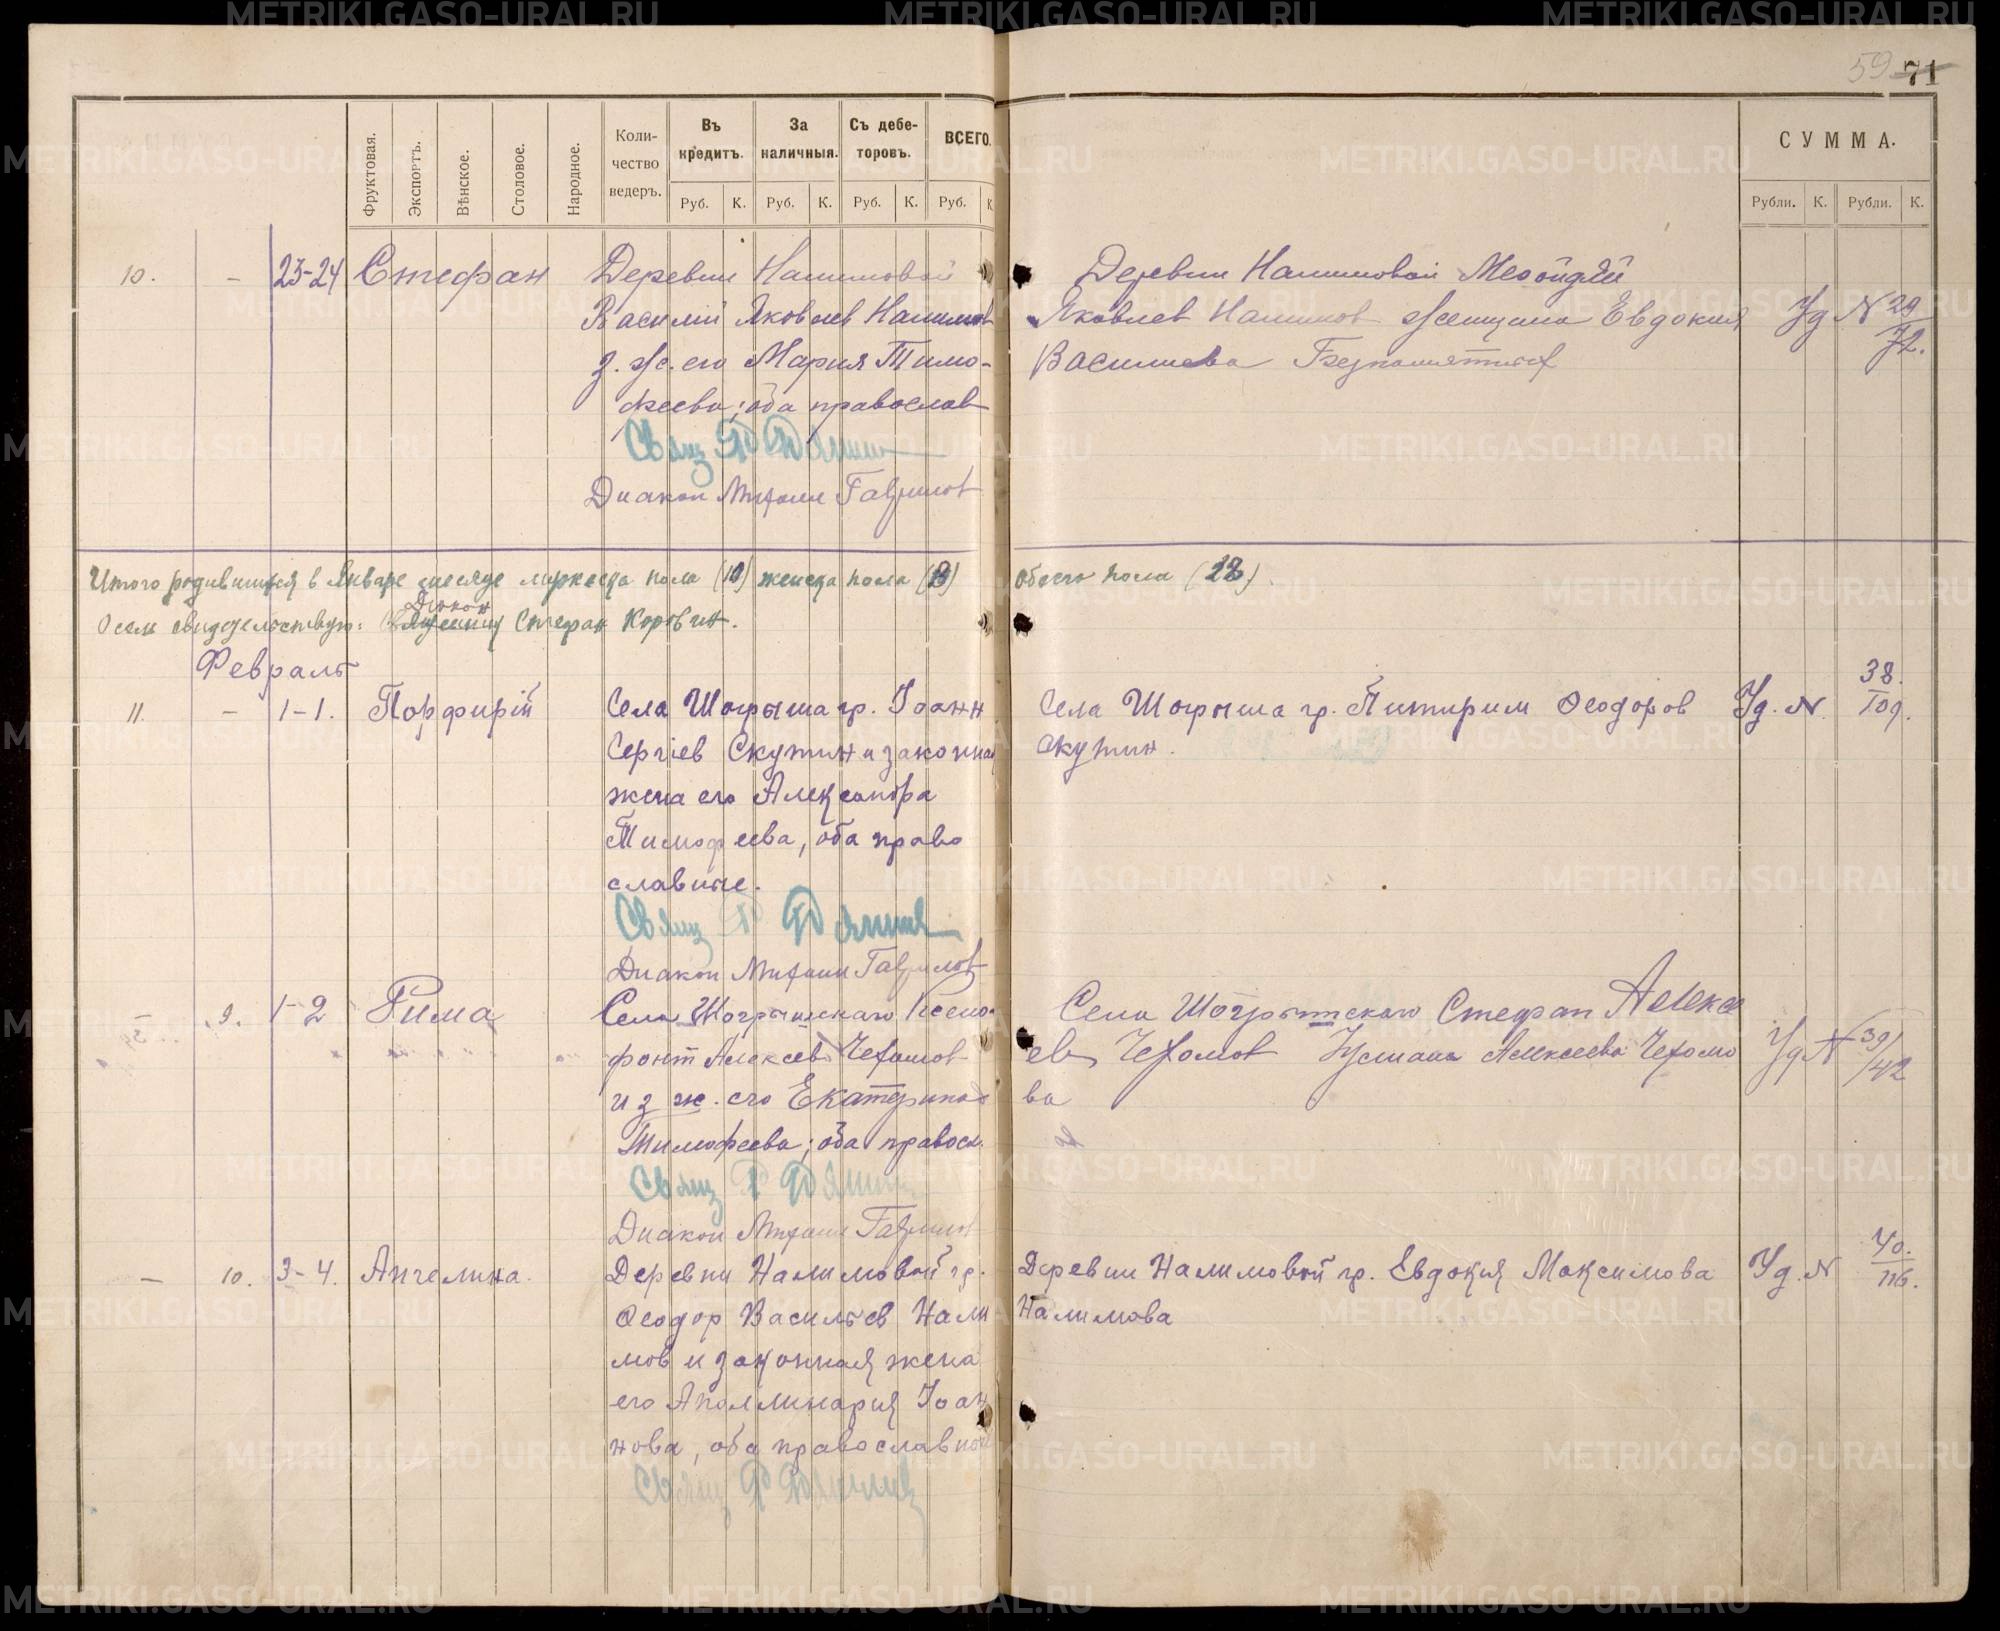 59 71
Фруктовая.
Экспортъ.
Вѣнское.
Столовое.
Народное.
Коли-
чество
ведеръ.
Въ
кредитъ.
За
наличныя.
Съ дебе-
торовъ.
ВСЕГО.
Руб. К. Руб. К. Руб. К. Руб. К
СУММА.
Рубли. К. Рубли. К.
10. – 23-24 Стефан
Деревни Налимовой
Василий Яковлев Налимов
з. ж. его Мария Тимо-
феева; оба православ
Свящ
Диакон Михаил Гаврилов
Деревни Налимовой
Яковлев Налимов Евдокия
Василиева
Уд N 29
72.
Итого родившихся в Январе месяце мужеска пола (10) женска пола ( )
обоего пола ( ).
О сем свидедельствую: Диакон Стефан Коровин.
Февраль
11. – 1-1. Порфирій
Села Шогрыша гр. Іоанн
Сергіев Скутин и законная
жена его Александра
Тимофеева, оба право
славные.
Свящ
Диакон Михаил Гаврилов
Села Шогрыша гр. Питирим Феодоров
Скутин.
Уд. N 38.
109.
– 9. 1-2 Рима
Села Шогрышскаго Ксено-
фонт Алексев Чехомов
и з ж. его Екатерина
Тимофеева; оба правосл.
Свящ
Диакон Михаил Гаврилов
Села Шогрышскаго Стефан Алексе
ев Чехомов Алексеева Чехомо
ва
Уд N 39/42
– 10. 3-4. Ангелина.
Деревни Налимовой гр.
Феодор Васильев Нали
мов и законная жена
его Аполлинария Іоан
нова, оба православные
Свящ
Деревни Налимовой гр. Евдокия Максимова
Налимова
Уд. N 40.
116.
METRIKI.GASO-URAL.RU